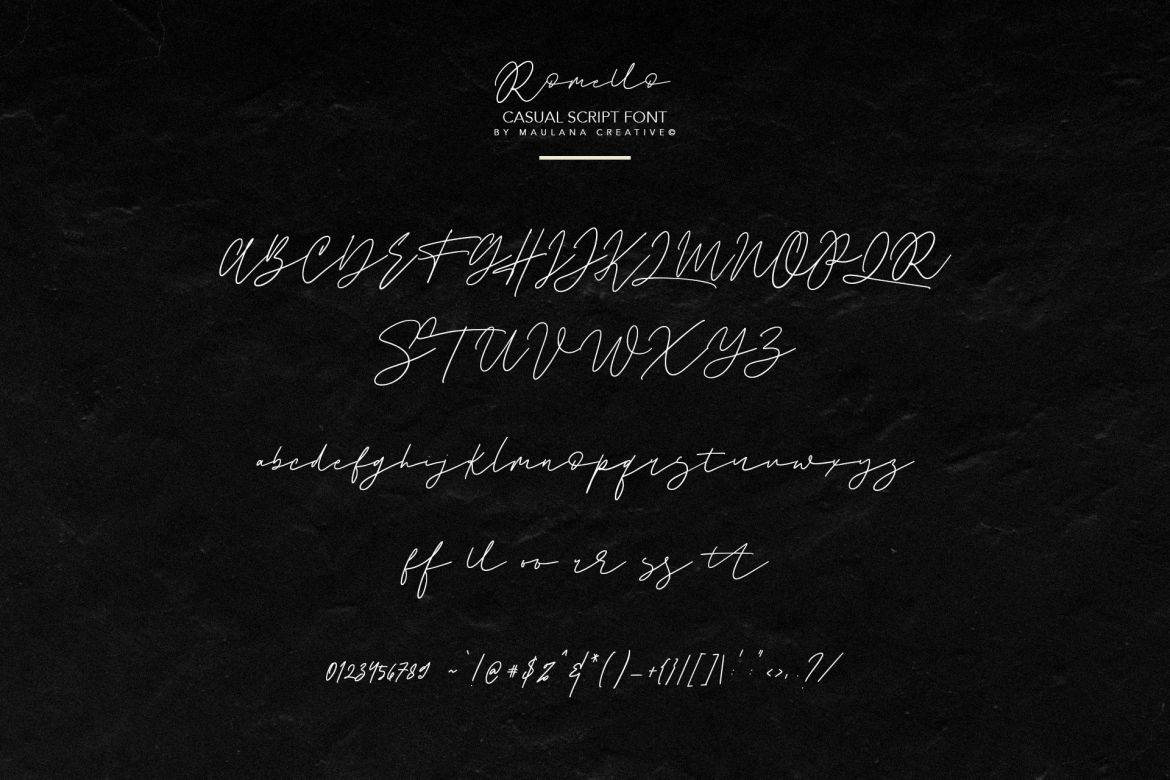 Romello
CASUAL SCRIPT FONT
BY MAULANA CREATIVE©
ABCDEFGHIJKLMNOPQR
STUVWXYZ
abcdefghijklmnopqrstuvwxyz
ff ll oo rr ss tt
0123456789 ~`!@#$%^&*()_+{}|[]\:;'"<>,.?/